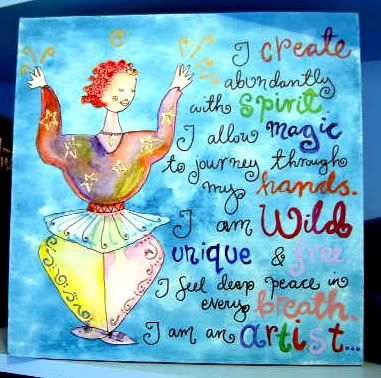 I create
abundantly
with spirit
I allow magic
to journey through
my hands.
I am Wild
unique & free.
I feel deep peace in
every breath.
I am an artist...